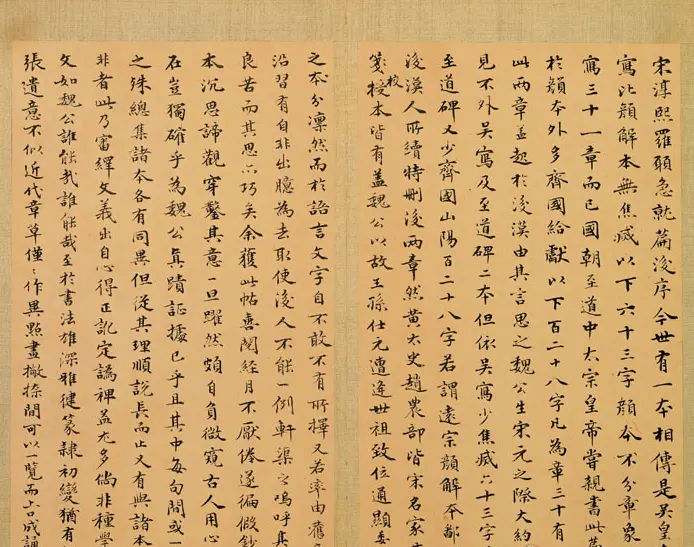 宋淳熙羅頋急就篇後序今世有一本相傳是吳皇
寫比顏解本無焦滅以下六十三字顏本不分章象
寫三十一章而已國朝至道中太宗皇帝嘗親書此
於顏本外多齊國給獻以下百二十八字凡為章三十有
此兩章蓋起於後漢由其言思之魏公生宋元之際大約
見不外吳寫及至道碑二本但依吳寫少焦滅六十三字
至道碑又少齊國山陽百二十八字若謂遠宗顏解本鄗
後漢人所續特刪後兩章然黃太史趙農部皆宋名家
箋校授本皆有蓋魏公以故王孫仕元遭逢世祖致位通顯
之本分凜然而於語言文字自不敢不有所擇又若率由舊
沿習有自非出臆為去取使後人不能一例軒渠也嗚呼其
良苦而其思亦巧矣余獲此帖喜閱經月不厭倦遂徧假鈔
本沉思諦觀穿鑿其意一旦躍然頗自負微窺古人用心
在豈獨確乎為魏公真蹟証據已乎且其中每句問或一
之殊總集諸本各有同異但從其理順說長而止又有與諸本
非者此乃審繹文義出自心得正訛定譌裨益尤多倘非種學
文如魏公誰能哉誰能哉至於書法雄深雅健篆隸初變猶有
張遺意不似近代章草僅僅作異點畫撇捺間可以一覽而上口成誦